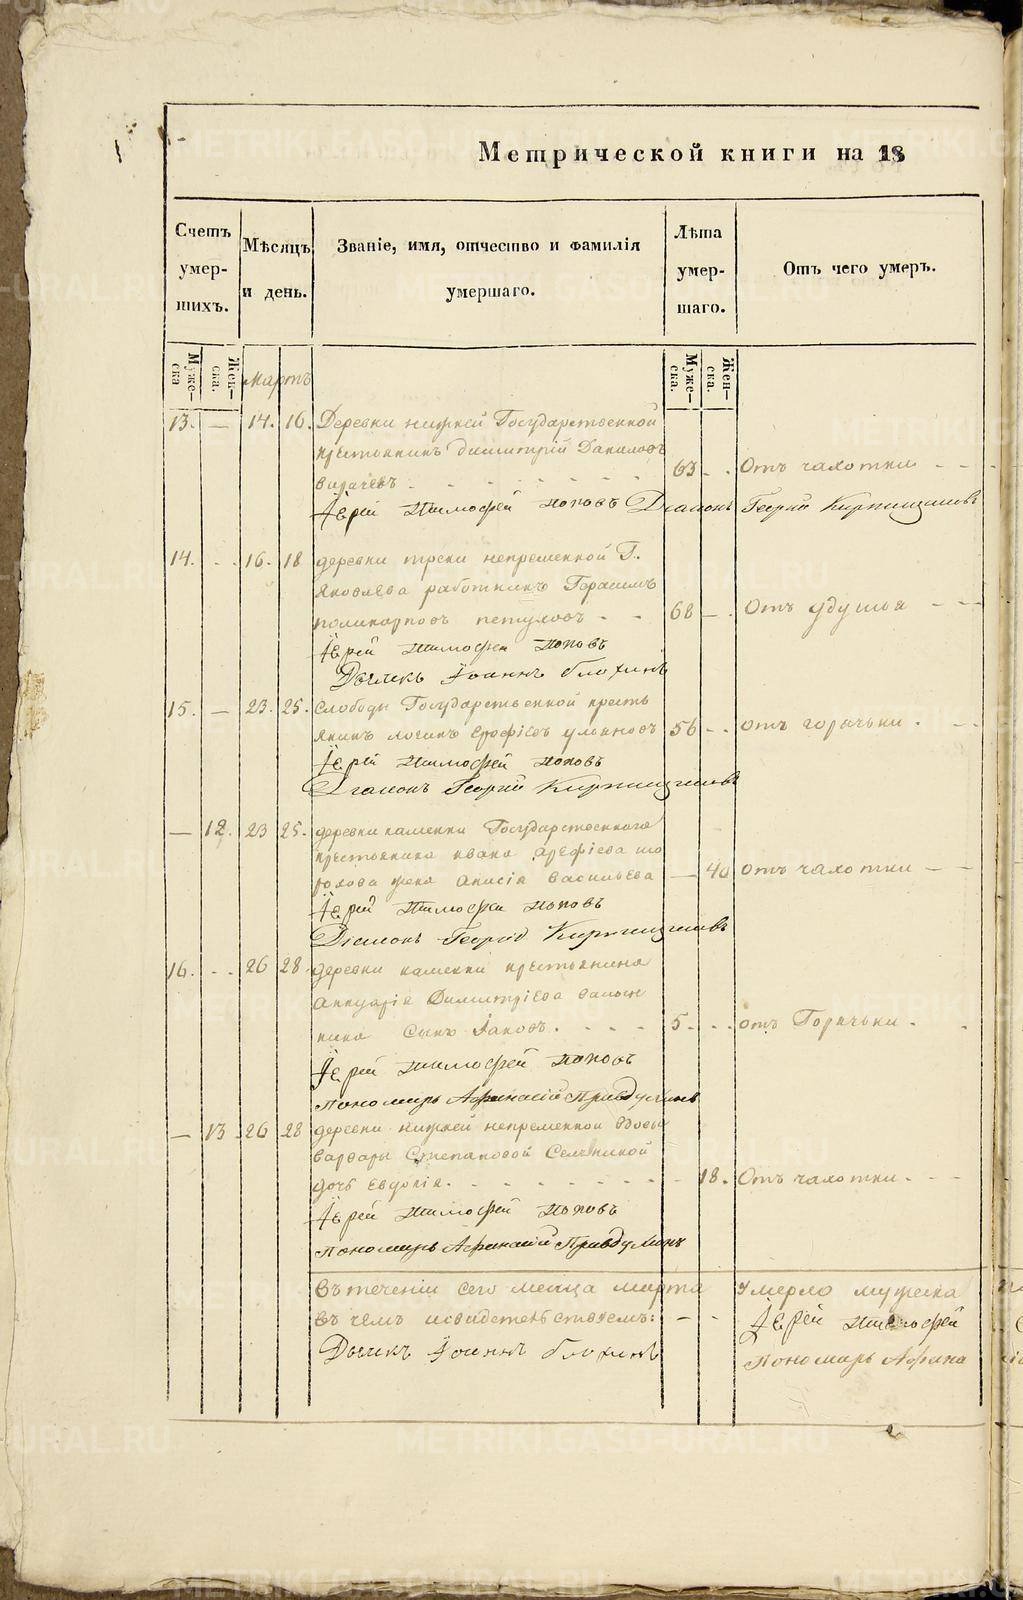 Метрической книги на 18
Счетъ умер- шихъ.
Мѣсяцъ и день.
Званіе, имя, отчество и фамилія умершаго.
Лѣта умер- шаго.
Отъ чего умеръ.
Муже- ска
Жен- ска.
Муже- ска.
Жен- ска.
мартъ
13. — 14. 16. Деревни нижней Государственной
крестьянинъ Димитрій Даниловъ
63 - . Отъ чахотки - - -
Іерей Тимофей Поповъ Діаконъ Георгій Кирпищиковъ
14. - . 16. 18 деревни треки непременной Г.
Яковлева работникъ Герасимъ
поликарповъ петуховъ - - 68 — . Отъ удушья - - -
Іерей Тимофей Поповъ
Дьячекъ Іоаннъ Блохинъ
15. — 23. 25. Слободы Государственной кресть
янинъ логинъ Ерофѣевъ улановъ 56 - . отъ горячьки . - -
Іерей Тимофей Поповъ
Діаконъ Георгій Кирпищиковъ
— 12. 23 25. деревни каменки Государственнаго
крестьянина ивана Арефіева
жена Анисія Васильева — 40 отъ чахотки - -
Іерей Тимофей Поповъ
Діаконъ Георгій Кирпищиковъ
16. - . 26 28 деревни каменки крестьянина
Аннуарія Димитріева
сынъ Іаковъ. - - - 5. - . отъ Горячьки . .
Іерей Тимофей Поповъ
Пономарь Афанасій Правдухинъ
— 13 26 28 деревни нижней непременной вдовы
варвары Степановой
дочь Евдокія. - - - 18. Отъ чахотки. - -
Іерей Тимофей Поповъ
Пономарь Афанасій Правдухинъ
въ теченіи сего месяца марта умерло мужеска
въ чемъ и свидетельствуемъ: - - Іерей Тимофей
Дьячекъ Іоаннъ Блохинъ Пономарь Афана
METRIKI.GASO-URAL.RU